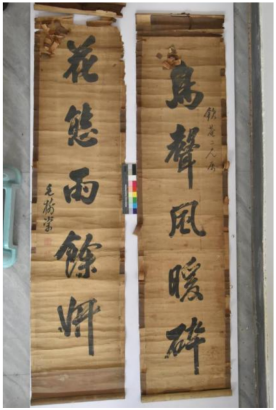 鳥聲風暖碎
花態雨餘妍